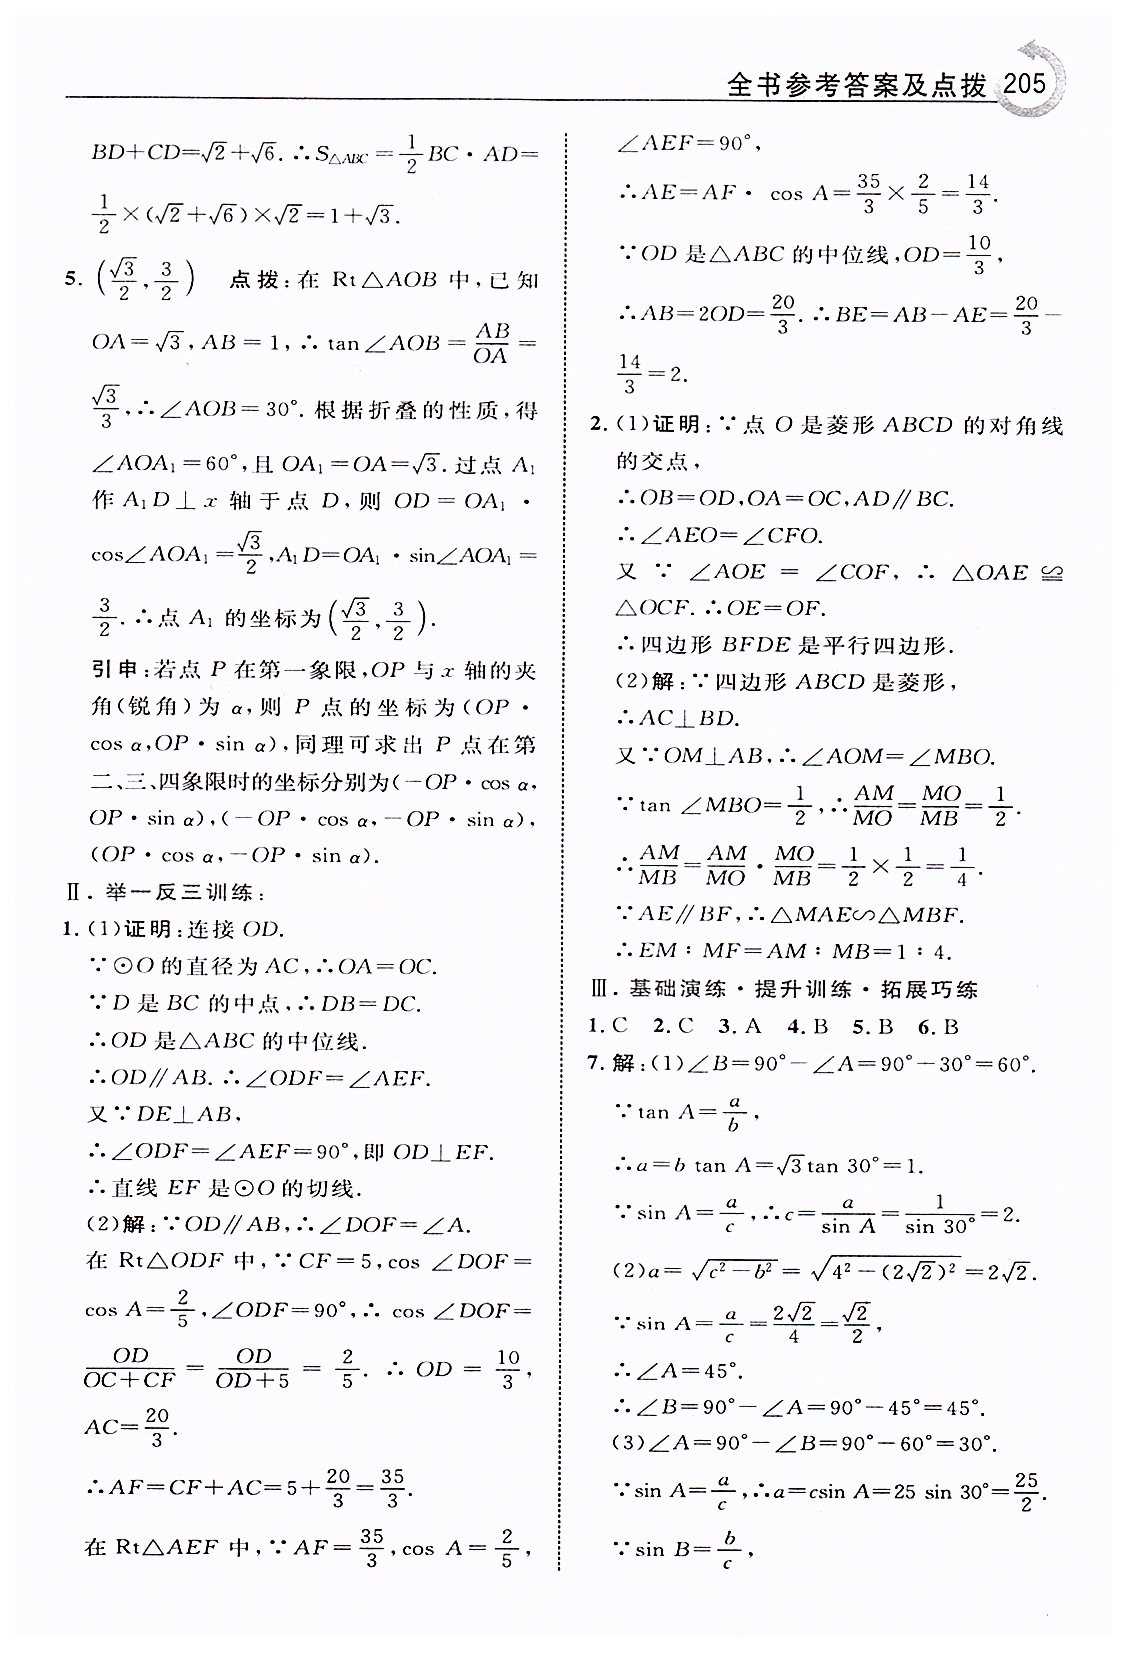 全书参考答案及点拨 205
BD+CD=√2+√6. ∴S△ABC=1/2BC·AD=
1/2×(√2+√6)×√2=1+√3.
5. (√3/2,3/2) 点拨:在 Rt△AOB 中,已知
OA=√3,AB=1,∴tan∠AOB=AB/OA=
√3/3,∴∠AOB=30°.根据折叠的性质,得
∠AOA₁=60°,且 OA₁=OA=√3.过点 A₁
作 A₁D⊥x 轴于点 D,则 OD=OA₁·
cos∠AOA₁=√3/2,A₁D=OA₁·sin∠AOA₁=
3/2.∴点 A₁ 的坐标为(√3/2,3/2).
引申:若点 P 在第一象限,OP 与 x 轴的夹
角(锐角)为 α,则 P 点的坐标为(OP·
cos α,OP·sin α),同理可求出 P 点在第
二、三、四象限时的坐标分别为(-OP·cos α,
OP·sin α),(-OP·cos α,-OP·sin α),
(OP·cos α,-OP·sin α).
Ⅱ.举一反三训练:
1.(1)证明:连接 OD.
∵⊙O 的直径为 AC,∴OA=OC.
∵D 是 BC 的中点,∴DB=DC.
∴OD 是△ABC 的中位线.
∴OD∥AB.∴∠ODF=∠AEF.
又∵DE⊥AB,
∴∠ODF=∠AEF=90°,即 OD⊥EF.
∴直线 EF 是⊙O 的切线.
(2)解:∵OD∥AB,∴∠DOF=∠A.
在 Rt△ODF 中,∵CF=5,cos ∠DOF=
cos A=2/5,∠ODF=90°,∴cos ∠DOF=
OD/(OC+CF)=OD/(OD+5)=2/5.∴OD=10/3,
AC=20/3.
∴AF=CF+AC=5+20/3=35/3.
在 Rt△AEF 中,∵AF=35/3,cos A=2/5,
∠AEF=90°,
∴AE=AF·cos A=35/3×2/5=14/3.
∵OD 是△ABC 的中位线,OD=10/3,
∴AB=2OD=20/3.∴BE=AB-AE=20/3-
14/3=2.
2.(1)证明:∵点 O 是菱形 ABCD 的对角线
的交点,
∴OB=OD,OA=OC,AD∥BC.
∴∠AEO=∠CFO.
又∵∠AOE=∠COF,∴△OAE≌
△OCF.∴OE=OF.
∴四边形 BFDE 是平行四边形.
(2)解:∵四边形 ABCD 是菱形,
∴AC⊥BD.
又∵OM⊥AB,∴∠AOM=∠MBO.
∵tan ∠MBO=1/2,∴AM/MO=MO/MB=1/2.
∴AM/MB=AM/MO·MO/MB=1/2×1/2=1/4.
∵AE∥BF,∴△MAE∽△MBF.
∴EM∶MF=AM∶MB=1∶4.
Ⅲ.基础演练·提升训练·拓展巧练
1.C 2.C 3.A 4.B 5.B 6.B
7.解:(1)∠B=90°-∠A=90°-30°=60°.
∵tan A=a/b,
∴a=b tan A=√3tan 30°=1.
∵sin A=a/c,∴c=a/sin A=1/sin 30°=2.
(2)a=√(c²-b²)=√(4²-(2√2)²)=2√2.
∵sin A=a/c=2√2/4=√2/2,
∴∠A=45°.
∴∠B=90°-∠A=90°-45°=45°.
(3)∠A=90°-∠B=90°-60°=30°.
∵sin A=a/c,∴a=csin A=25 sin 30°=25/2.
∵sin B=b/c,